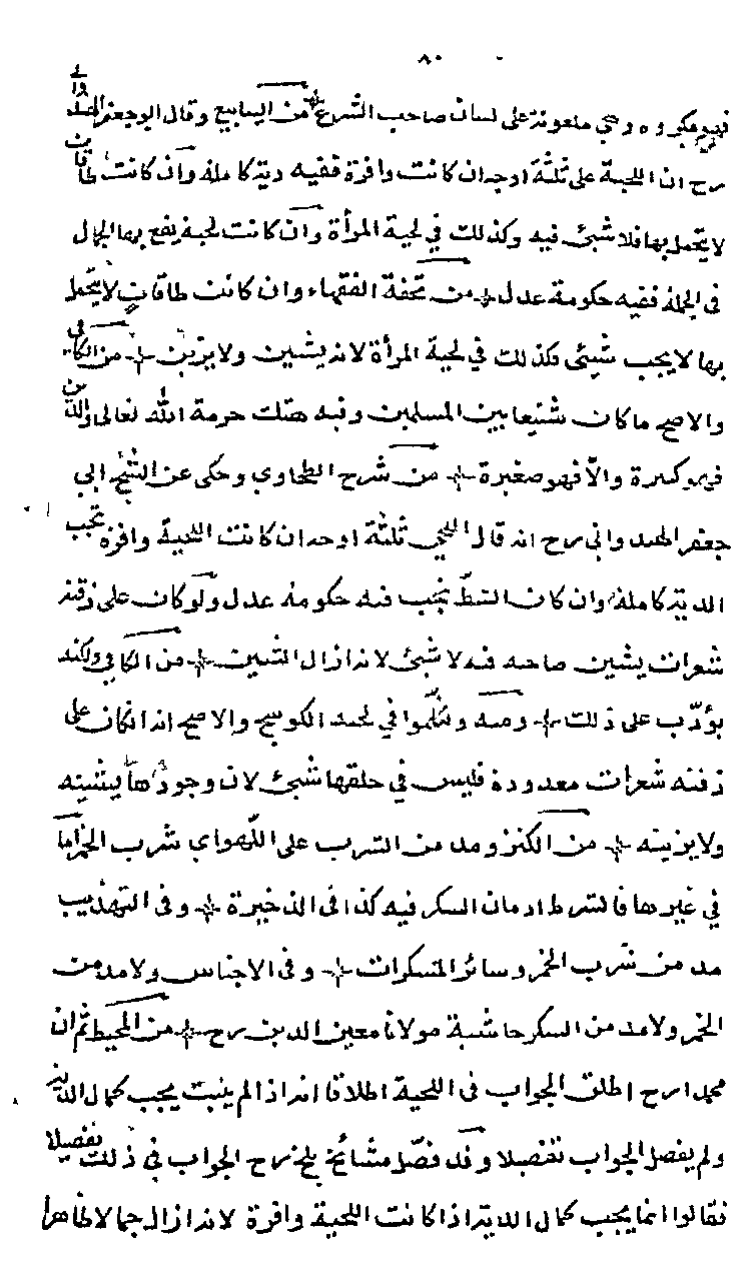 ٨٠
فهو مكروه وهي ملعونة على لسان صاحب الشرع من الينابيع وقال ابو جعفر الهندوانى
رح ان اللحية على ثلثة اوجه ان كانت وافرة ففيه دية كاملة وان كانت طاقات
لا يتجمل بها فلا شئ فيه وكذلك في لحية المرأة وان كانت لحية يقع بها الجمال
فى الجملة ففيه حكومة عدل من تحفة الفقهاء وان كانت طاقات لا يتجمل
بها لا يجب شئ فكذلك في لحية المرأة لانه يشين ولا يزين من الكافى
والاصح ما كان شنيعا بين المسلمين وفيه هتك حرمة الله تعالى والدين
فهو كبيرة والا فهو صغيرة من شرح الطحاوي وحكى عن الشيخ ابي
جعفر الهندواني رح انه قال اللحى ثلثة اوجه ان كانت اللحية وافرة تجب
الدية كاملة وان كان الشط تجب فيه حكومة عدل ولو كان على ذقنه
شعرات يشين صاحبه فيه لا شئ لانه ازال الشين من الكافي ولكنه
يؤدّب على ذلك ومنه وتكلموا في لحية الكوسج والاصح انه ان كان على
ذقنه شعرات معدودة فليس في حلقها شئ لان وجودها يشينه
ولا يزينه من الكنز ومدمن الشرب على اللهو اي شرب الخمر اما
في غيرها فالشرط ادمان السكر فيه كذا فى الذخيرة وفى التهذيب
مدمن شرب الخمر وسائر المسكرات وفى الاجناس ولا مدمن
الخمر ولا مدمن السكر حاشية مولانا معين الدين رح من المحيط ثم ان
محمدا رح اطلق الجواب فى اللحية اطلاقا انه اذا لم ينبت يجب كمال الدية
ولم يفصل الجواب تفصيلا وقد فصّل مشائخ بلخ رح الجواب في ذلك تفصيلا
فقالوا انما يجب كمال الدية اذا كانت اللحية وافرة لانه ازال جمالا ظاهرا